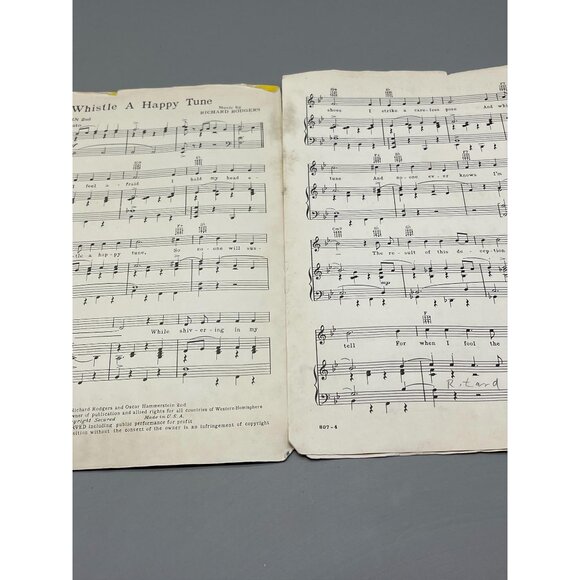 Whistle A Happy Tune
Music by
RICHARD RODGERS
IN 2nd
I feel a - fraid I hold my head e -
a hap - py tune, So no - one will sus -
While shiv - er - ing in my
Richard Rodgers and Oscar Hammerstein 2nd
owner of publication and allied rights for all countries of Western Hemisphere
Copyright Secured Made in U.S.A.
including public performance for profit
without the consent of the owner is an infringement of copyright
shoes I strike a care-less pose And
tune And no-one ev - er knows I'm
Cm7
The re - sult of this de - cep - tion
mp
F
tell For when I fool the
Ritard
607-4